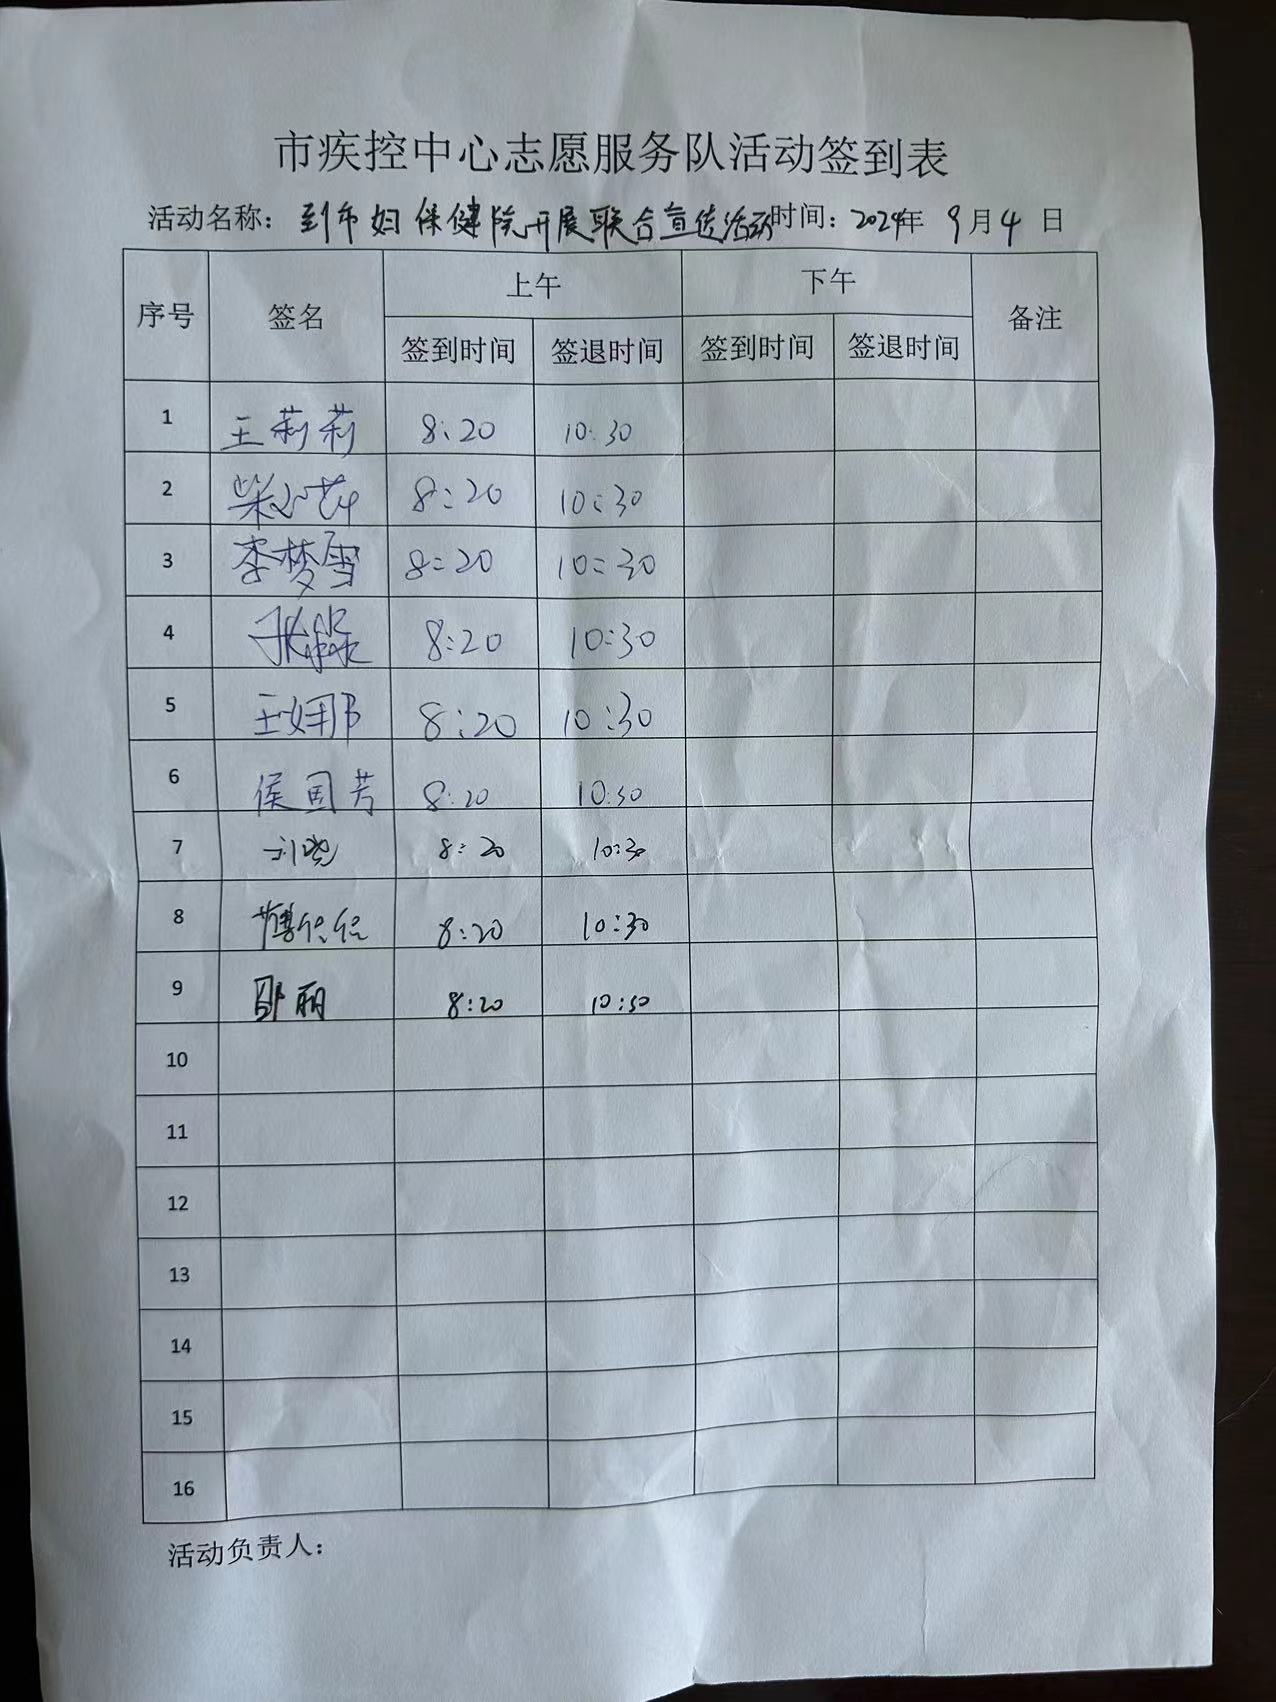 市疾控中心志愿服务队活动签到表
活动名称：到市妇保健院开展联合宣传活动 时间：2024年 9月4日
序号 签名 上午 下午 备注
签到时间 签退时间 签到时间 签退时间
1 王莉莉 8:20 10:30
2 柴小 8:20 10:30
3 李梦雪 8:20 10:30
4 张 8:20 10:30
5 王娜 8:20 10:30
6 侯国芳 8:20 10:30
7 刘晓 8:20 10:30
8 8:20 10:30
9 丽 8:20 10:30
10
11
12
13
14
15
16
活动负责人：